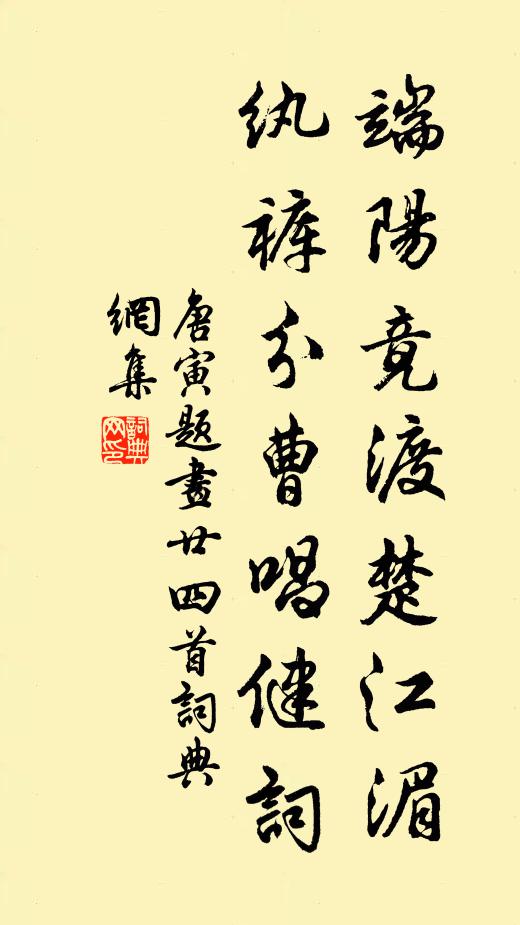 端陽竟渡楚江湄
紈裤分曹唱健詞
唐寅題畫廿四首詞典
網集
詞典網印